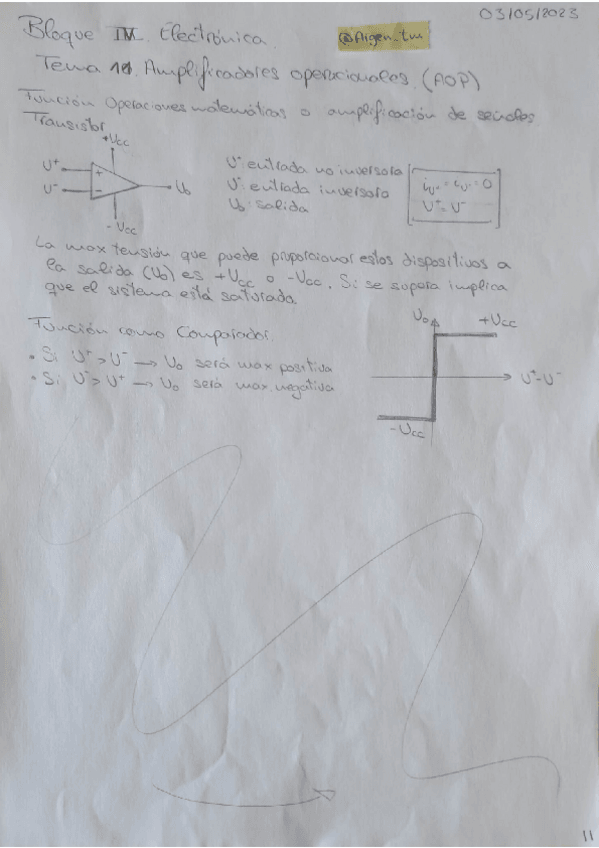 03/05/2023
Bloque IV. Electrónica. @Aigen_tm
Tema 11. Amplificadores operacionales. (AOP)
Función Operaciones matemáticas o amplificación de señales
Transistor
+Ucc
U+
U-
+
-
Uo
-Ucc
U+ entrada no inversora
U- entrada inversora
Uo: salida
iU+ = iU- = 0
U+ = U-
La max tensión que puede proporcionar estos dispositivos a
la salida (Uo) es +Ucc o -Ucc. Si se supera implica
que el sistema está saturado.
Función como Comparador.
• Si U+ > U- → Uo será max positiva
• Si U- > U+ → Uo será max. negativa
Uo
+Ucc
U+-U-
-Ucc
11